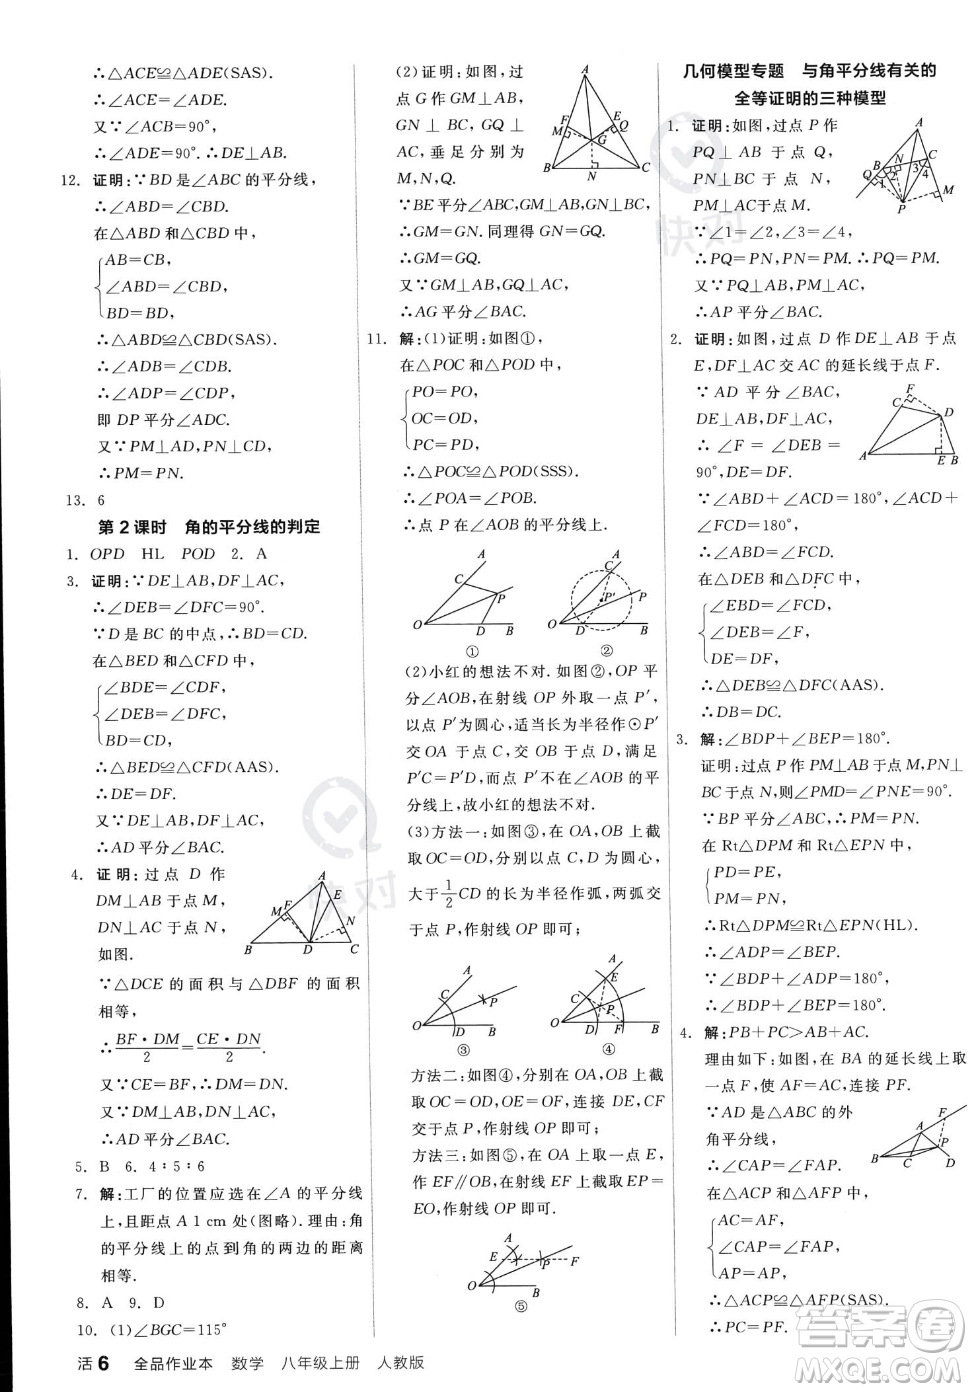 ∴△ACE≌△ADE(SAS).
∴∠ACE=∠ADE.
又∵∠ACB=90°,
∴∠ADE=90°.∴DE⊥AB.
12. 证明:∵BD是∠ABC的平分线,
∴∠ABD=∠CBD.
在△ABD和△CBD中,
AB=CB,
∠ABD=∠CBD,
BD=BD,
∴△ABD≌△CBD(SAS).
∴∠ADB=∠CDB.
∴∠ADP=∠CDP.
即DP平分∠ADC.
又∵PM⊥AD,PN⊥CD,
∴PM=PN.
13. 6
第2课时 角的平分线的判定
1. OPD HL POD 2. A
3. 证明:∵DE⊥AB,DF⊥AC,
∴∠DEB=∠DFC=90°.
∵D是BC的中点,∴BD=CD.
在△BED和△CFD中,
∠BDE=∠CDF,
∠DEB=∠DFC,
BD=CD,
∴△BED≌△CFD(AAS).
∴DE=DF.
又∵DE⊥AB,DF⊥AC,
∴AD平分∠BAC.
4. 证明:过点D作
DM⊥AB于点M,
DN⊥AC于点N,
如图.
A
F
M
E
N
B
D
C
∵△DCE的面积与△DBF的面积
相等,
∴BF·DM/2=CE·DN/2.
又∵CE=BF,∴DM=DN.
又∵DM⊥AB,DN⊥AC,
∴AD平分∠BAC.
5. B 6. 4∶5∶6
7. 解:工厂的位置应选在∠A的平分线
上,且距点A1cm处(图略).理由:角
的平分线上的点到角的两边的距离
相等.
8. A 9. D
10. (1)∠BGC=115°
(2)证明:如图,过
点G作GM⊥AB,
GN⊥BC,GQ⊥
AC,垂足分别为
M,N,Q.
A
F
M
E
Q
G
B
N
C
∵BE平分∠ABC,
∴GM=GN.同理得GN=GQ.
∴GM=GQ.
又∵GM⊥AB,GQ⊥AC,
∴AG平分∠BAC.
11. 解:(1)证明:如图①,
在△POC和△POD中,
PO=PO,
OC=OD,
PC=PD,
∴△POC≌△POD(SSS).
∴∠POA=∠POB.
∴点P在∠AOB的平分线上.
A
C
P
O
D
B
①
A
C
P′
P
O
D
B
②
(2)小红的想法不对.如图②,OP平
分∠AOB,在射线OP外取一点P′,
以点P′为圆心,适当长为半径作⊙P′
交OA于点C,交OB于点D,满足
P′C=P′D,但点P′不在∠AOB的平
分线上,故小红的想法不对.
(3)方法一:如图③,在OA,OB上截
取OC=OD,分别以点C,D为圆心,
大于1/2CD的长为半径作弧,两弧交
于点P,作射线OP即可;
A
C
P
O
D
B
③
A
E
C
P
O
D
F
B
④
方法二:如图④,分别在OA,OB上截
取OC=OD,OE=OF,连接DE,CF
交于点P,作射线OP即可;
方法三:如图⑤,在OA上取一点E,
作EF∥OB,在射线EF上截取EP=
EO,作射线OP即可.
A
E
P
F
O
B
⑤
几何模型专题 与角平分线有关的
全等证明的三种模型
1. 证明:如图,过点P作
PQ⊥AB于点Q,
PN⊥BC于点N,
PM⊥AC于点M.
A
B
N
C
Q
1
2
3
4
P
M
∵∠1=∠2,∠3=∠4,
∴PQ=PN,PN=PM.
∴PQ=PM.
∴AP平分∠BAC.
2. 证明:如图,过点D作DE⊥AB于点
E,DF⊥AC交AC的延长线于点F.
∵AD平分∠BAC,
DE⊥AB,DF⊥AC,
∴∠F=∠DEB=
90°,DE=DF.
F
C
D
A
E
B
∵∠ABD+∠ACD=180°,∠ACD+
∠FCD=180°,
∴∠ABD=∠FCD.
在△EBD和△FCD中,
∠EBD=∠FCD,
∠DEB=∠F,
DE=DF,
∴△EBD≌△FCD(AAS).
∴DB=DC.
3. 解:∠BDP+∠BEP=180°.
证明:过点P作PM⊥AB于点M,PN⊥
BC于点N,则∠PMD=∠PNE=90°.
∵BP平分∠ABC,∴PM=PN.
在Rt△DPM和Rt△EPN中,
PD=PE,
PM=PN,
∴Rt△DPM≌Rt△EPN(HL).
∴∠ADP=∠BEP.
∵∠BDP+∠ADP=180°,
∴∠BDP+∠BEP=180°.
4. 解:PB+PC>AB+AC.
理由如下:如图,在BA的延长线上取一
点F,使AF=AC,连接PF.
∵AD是△ABC的外
角平分线,
∴∠CAP=∠FAP.
F
A
P
B
C
D
在△ACP和△AFP中,
AC=AF,
∠CAP=∠FAP,
AP=AP,
∴△ACP≌△AFP(SAS).
∴PC=PF.
活6 全品作业本 数学 八年级上册 人教版
快对
快对
作业精灵